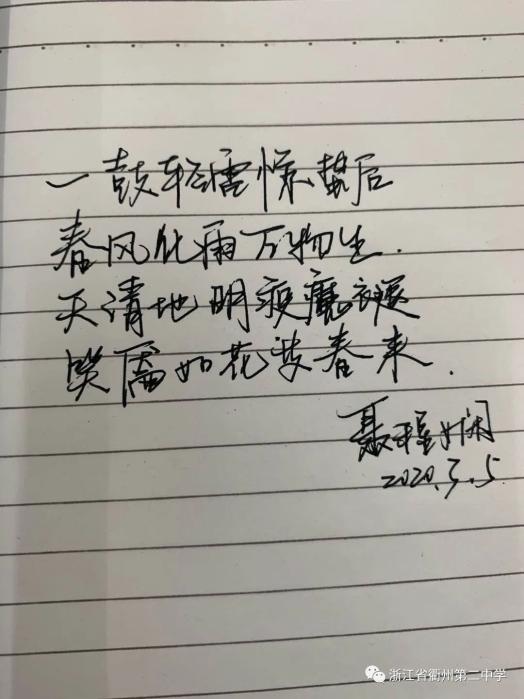 一鼓轻雷惊蛰后
春风化雨万物生.
天清地明疫魔退
笑靥如花梦春来.
聂程娴
2020.3.5
浙江省衢州第二中学